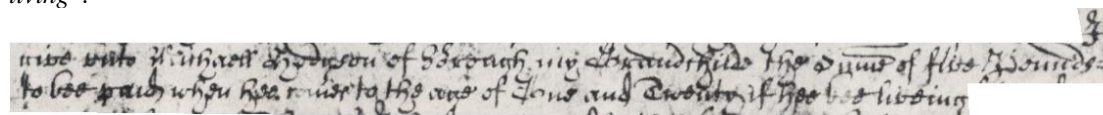 living".
I
give unto Michaell Hodgson of Borough my Grandchilde the Sume of five Pounds
to bee paid when hee comes to the age of One and Twenty if hee bee liveing